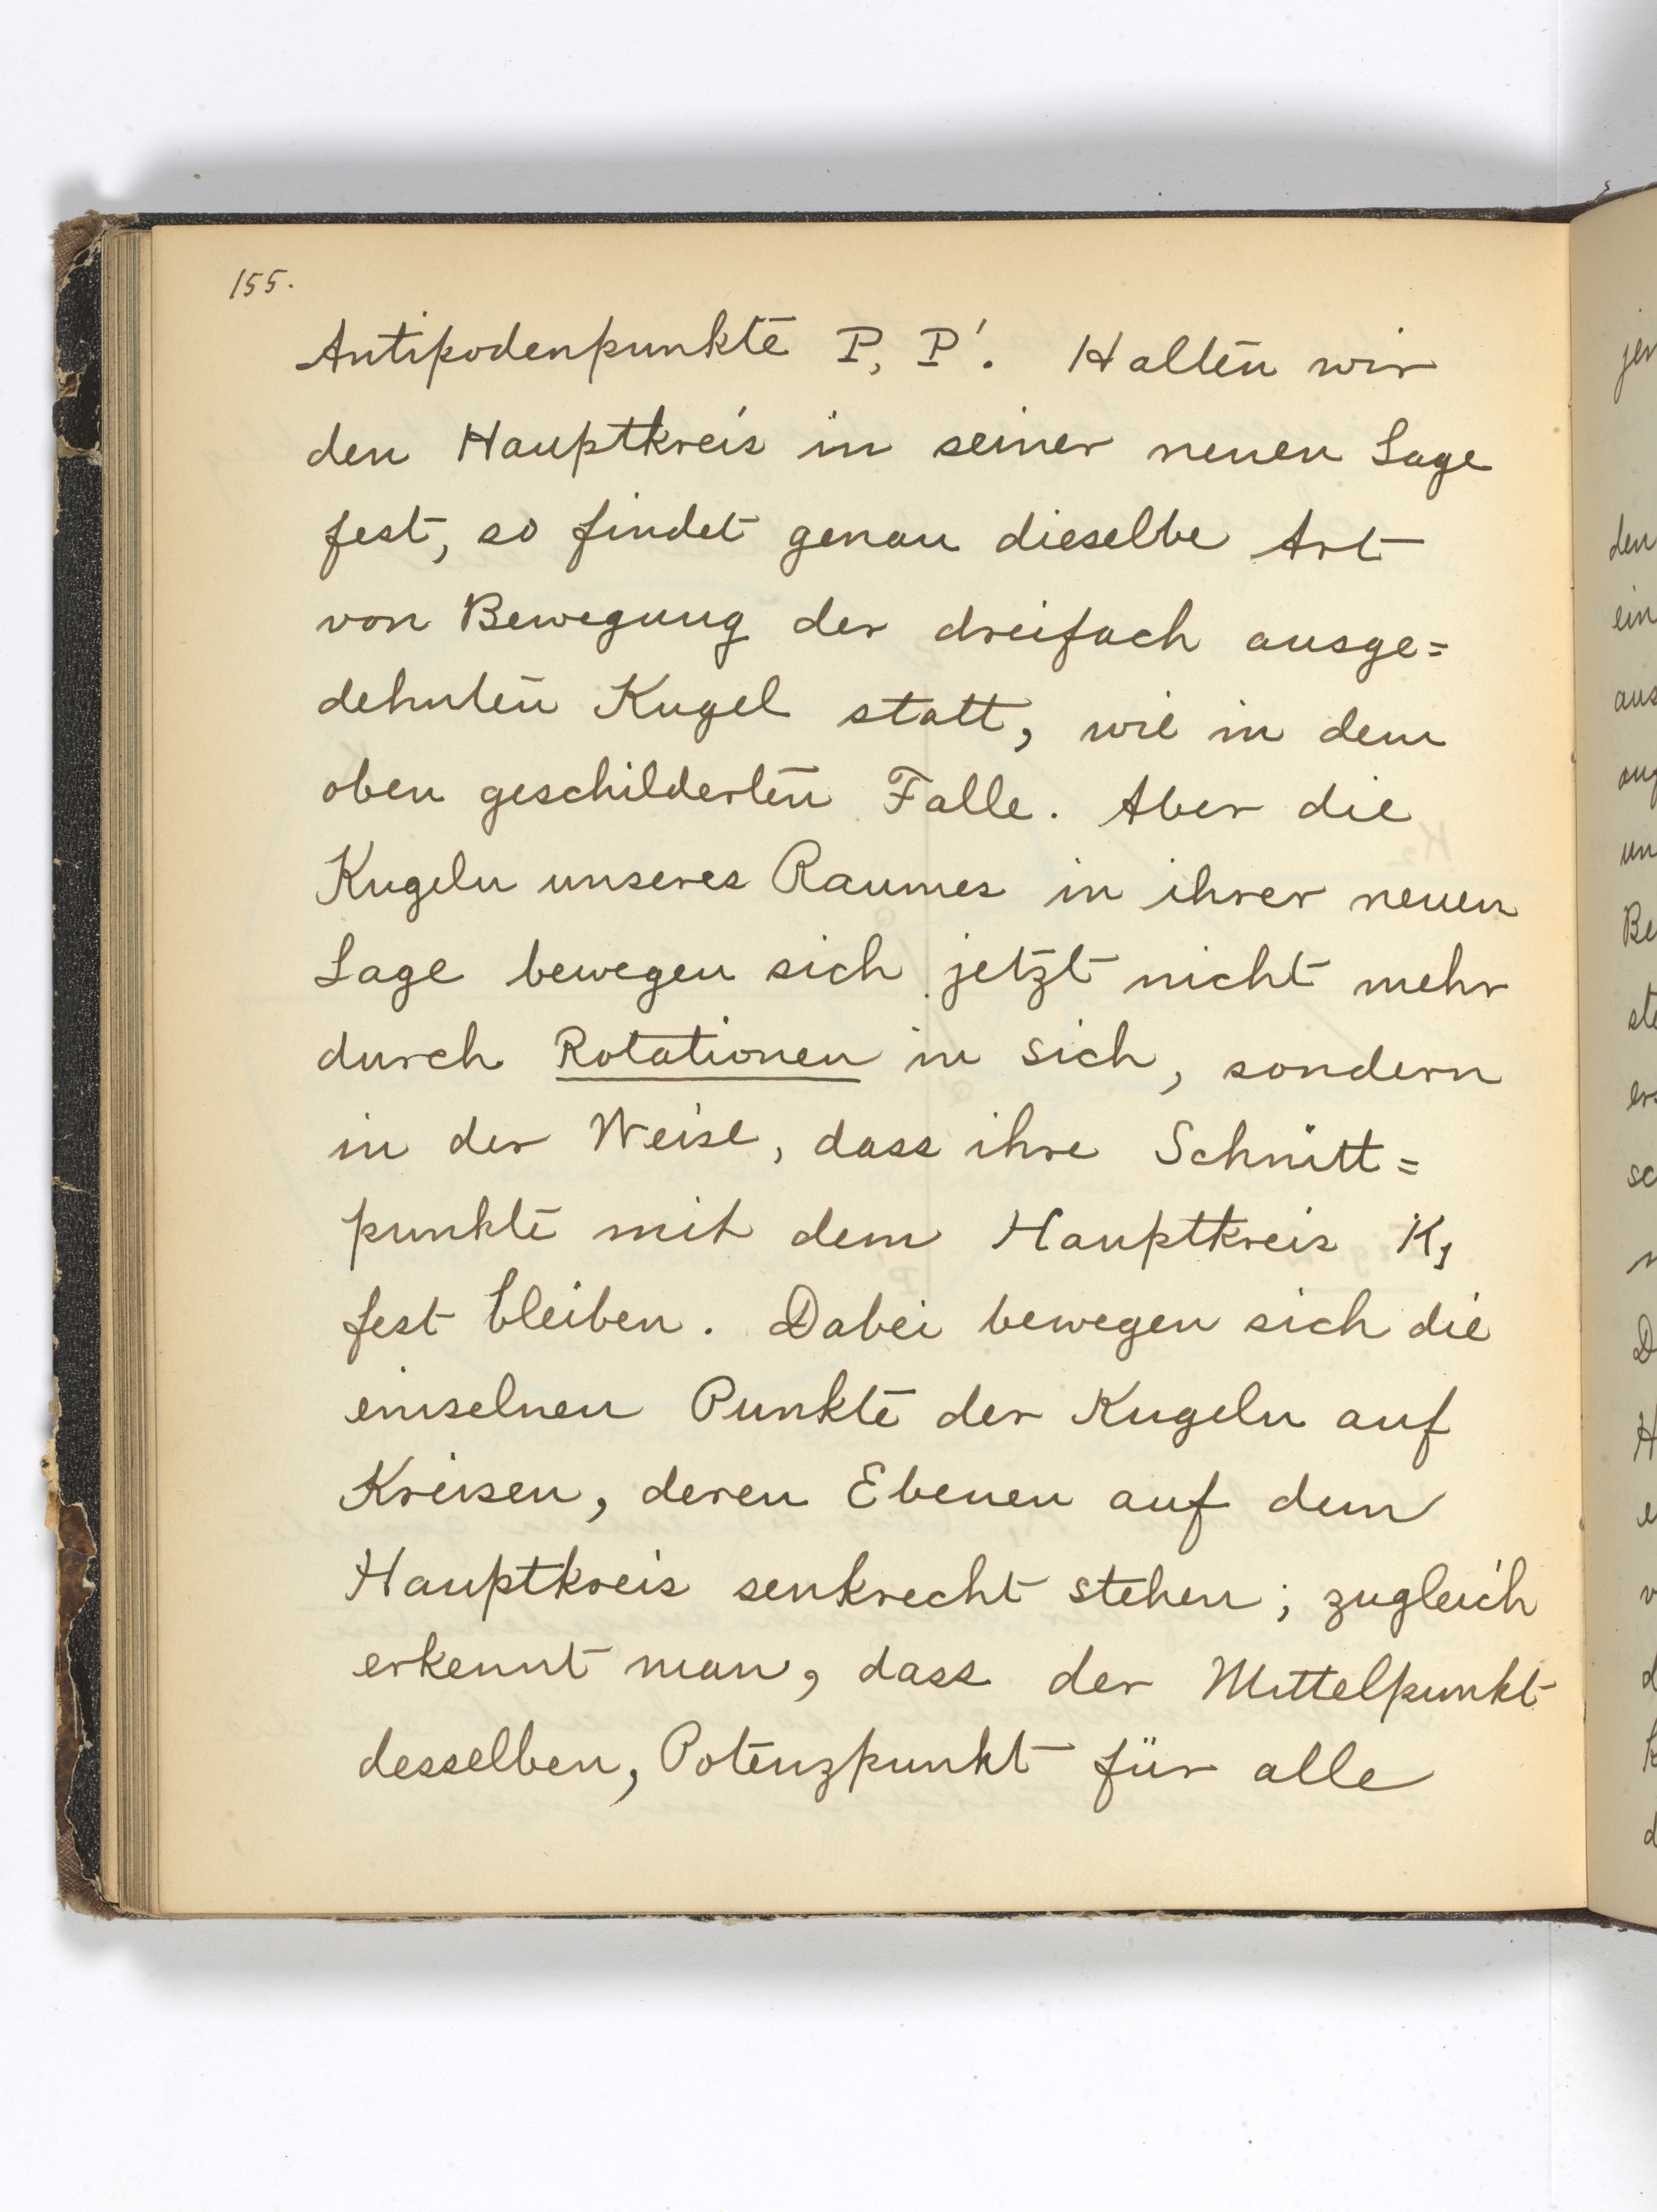 155.
Antipodenpunkte P, P'. Halten wir
den Hauptkreis in seiner neuen Lage
fest, so findet genau dieselbe Art
von Bewegung der dreifach ausge=
dehnten Kugel statt, wie in dem
oben geschilderten Falle. Aber die
Kugeln unseres Raumes in ihrer neuen
Lage bewegen sich jetzt nicht mehr
durch Rotationen in sich, sondern
in der Weise, dass ihre Schnitt=
punkte mit dem Hauptkreis K₁
fest bleiben. Dabei bewegen sich die
einzelnen Punkte der Kugeln auf
Kreisen, deren Ebenen auf dem
Hauptkreis senkrecht stehen; zugleich
erkennt man, dass der Mittelpunkt
desselben, Potenzpunkt für alle